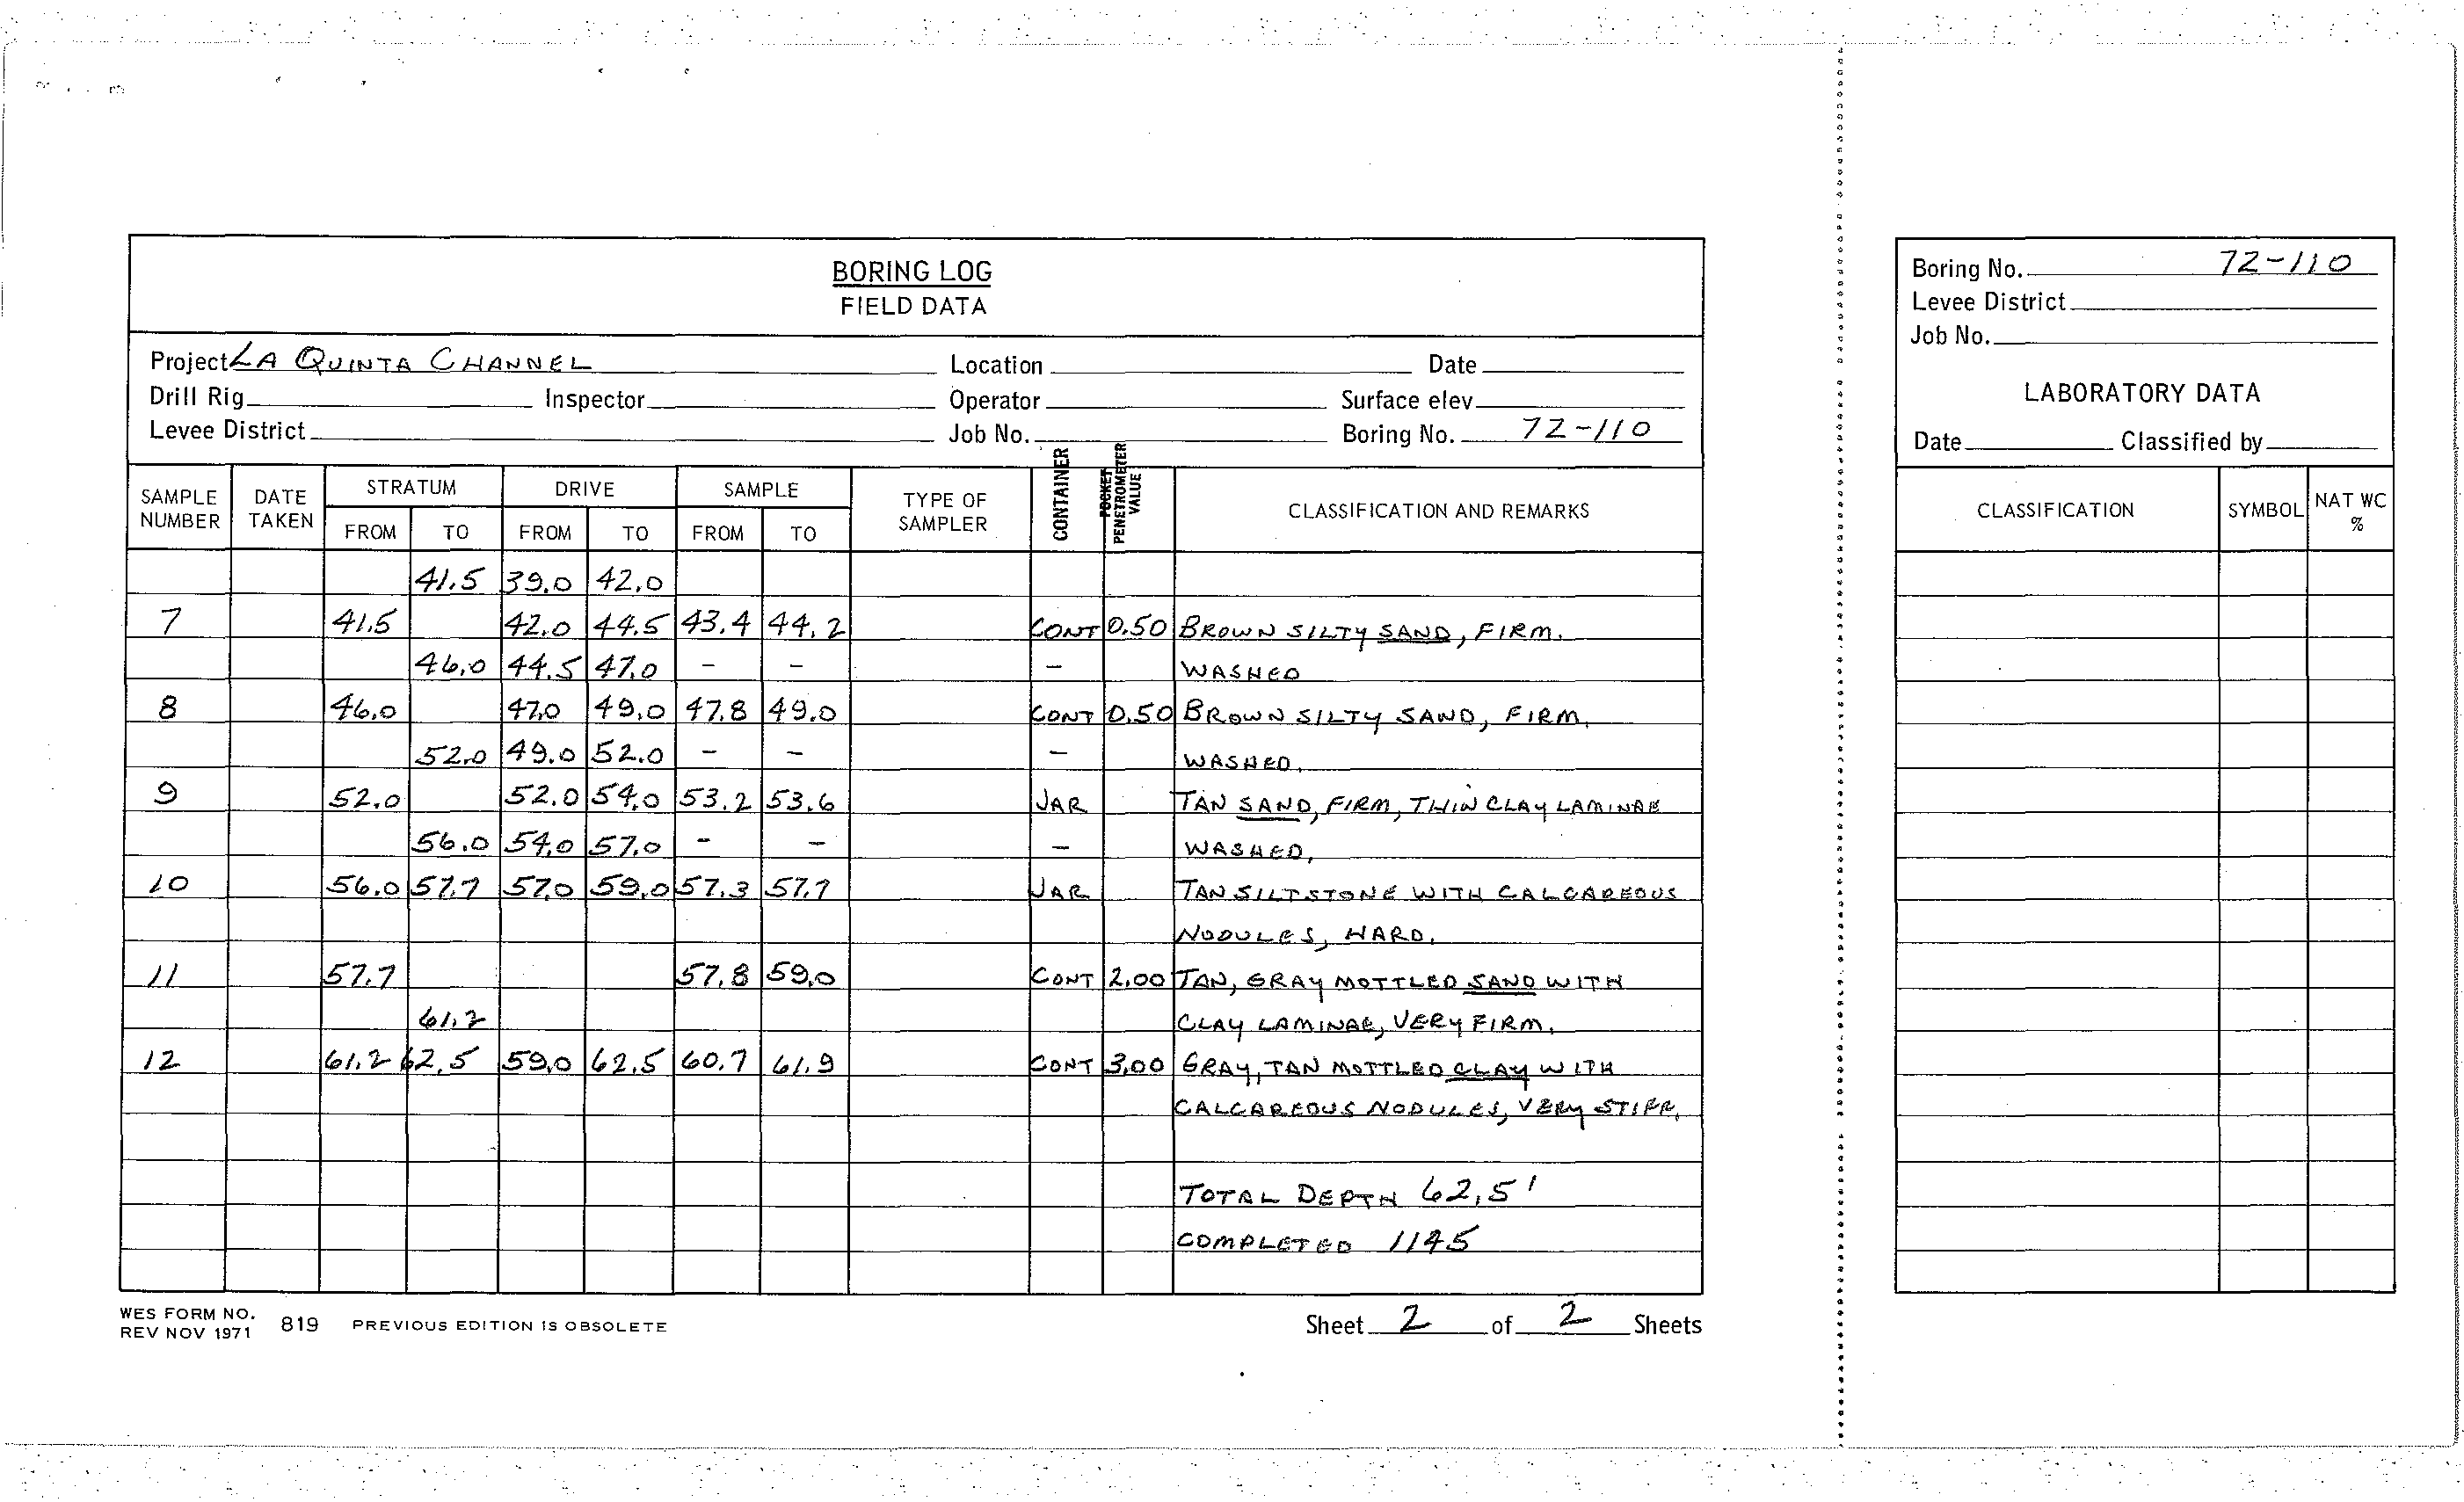 BORING LOG
FIELD DATA
Project LA QUINTA CHANNEL Location Date
Drill Rig Inspector Operator Surface elev
Levee District Job No. Boring No. 72-110
SAMPLE NUMBER DATE TAKEN STRATUM FROM TO DRIVE FROM TO SAMPLE FROM TO TYPE OF SAMPLER CONTAINER POCKET PENETROMETER VALUE CLASSIFICATION AND REMARKS
41.5 39.0 42.0
7 41.5 42.0 44.5 43.4 44.2 CONT 0.50 BROWN SILTY SAND, FIRM.
46.0 44.5 47.0 - - - WASHED
8 46.0 47.0 49.0 47.8 49.0 CONT 0.50 BROWN SILTY SAND, FIRM.
52.0 49.0 52.0 - - - WASHED.
9 52.0 52.0 54.0 53.2 53.6 JAR TAN SAND, FIRM, THIN CLAY LAMINAE
56.0 54.0 57.0 - - - WASHED.
10 56.0 57.7 57.0 59.0 57.3 57.7 JAR TAN SILTSTONE WITH CALCAREOUS
NODULES, HARD.
11 57.7 57.8 59.0 CONT 2.00 TAN, GRAY MOTTLED SAND WITH
61.2 CLAY LAMINAE, VERY FIRM.
12 61.2 62.5 59.0 62.5 60.7 61.9 CONT 3.00 GRAY, TAN MOTTLED CLAY WITH
CALCAREOUS NODULES, VERY STIFF.
TOTAL DEPTH 62.5'
COMPLETED 1145
WES FORM NO. 819 PREVIOUS EDITION IS OBSOLETE
REV NOV 1971
Sheet 2 of 2 Sheets
Boring No. 72-110
Levee District
Job No.
LABORATORY DATA
Date Classified by
CLASSIFICATION SYMBOL NAT WC %